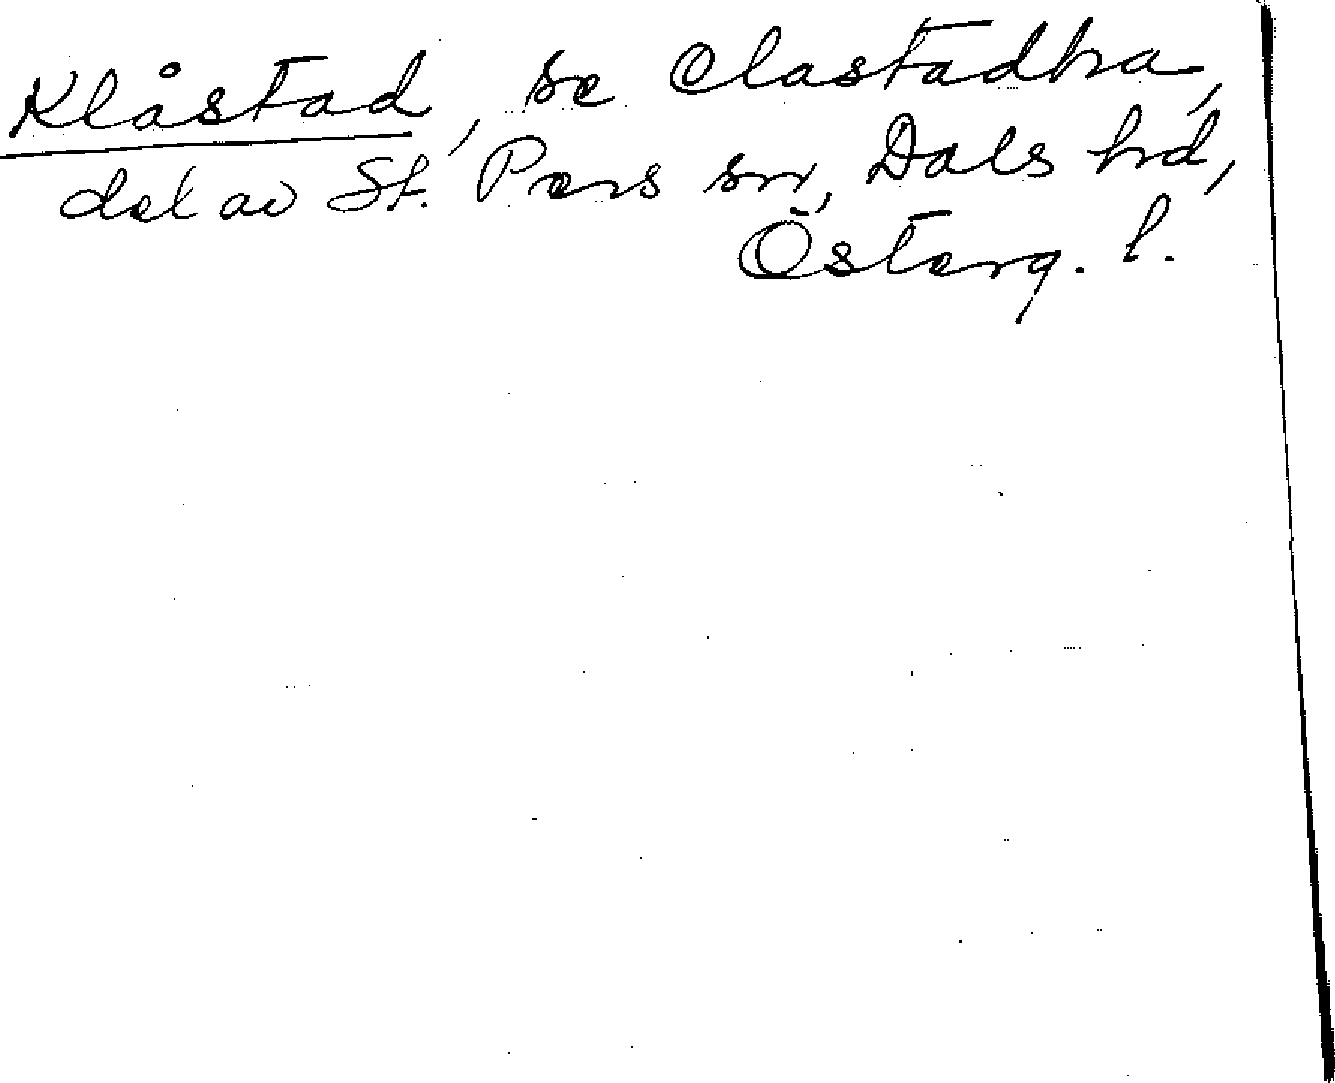 Klåstad, se Clastadha,
del av St. Pers sn, Dals hd,
Österg. l.